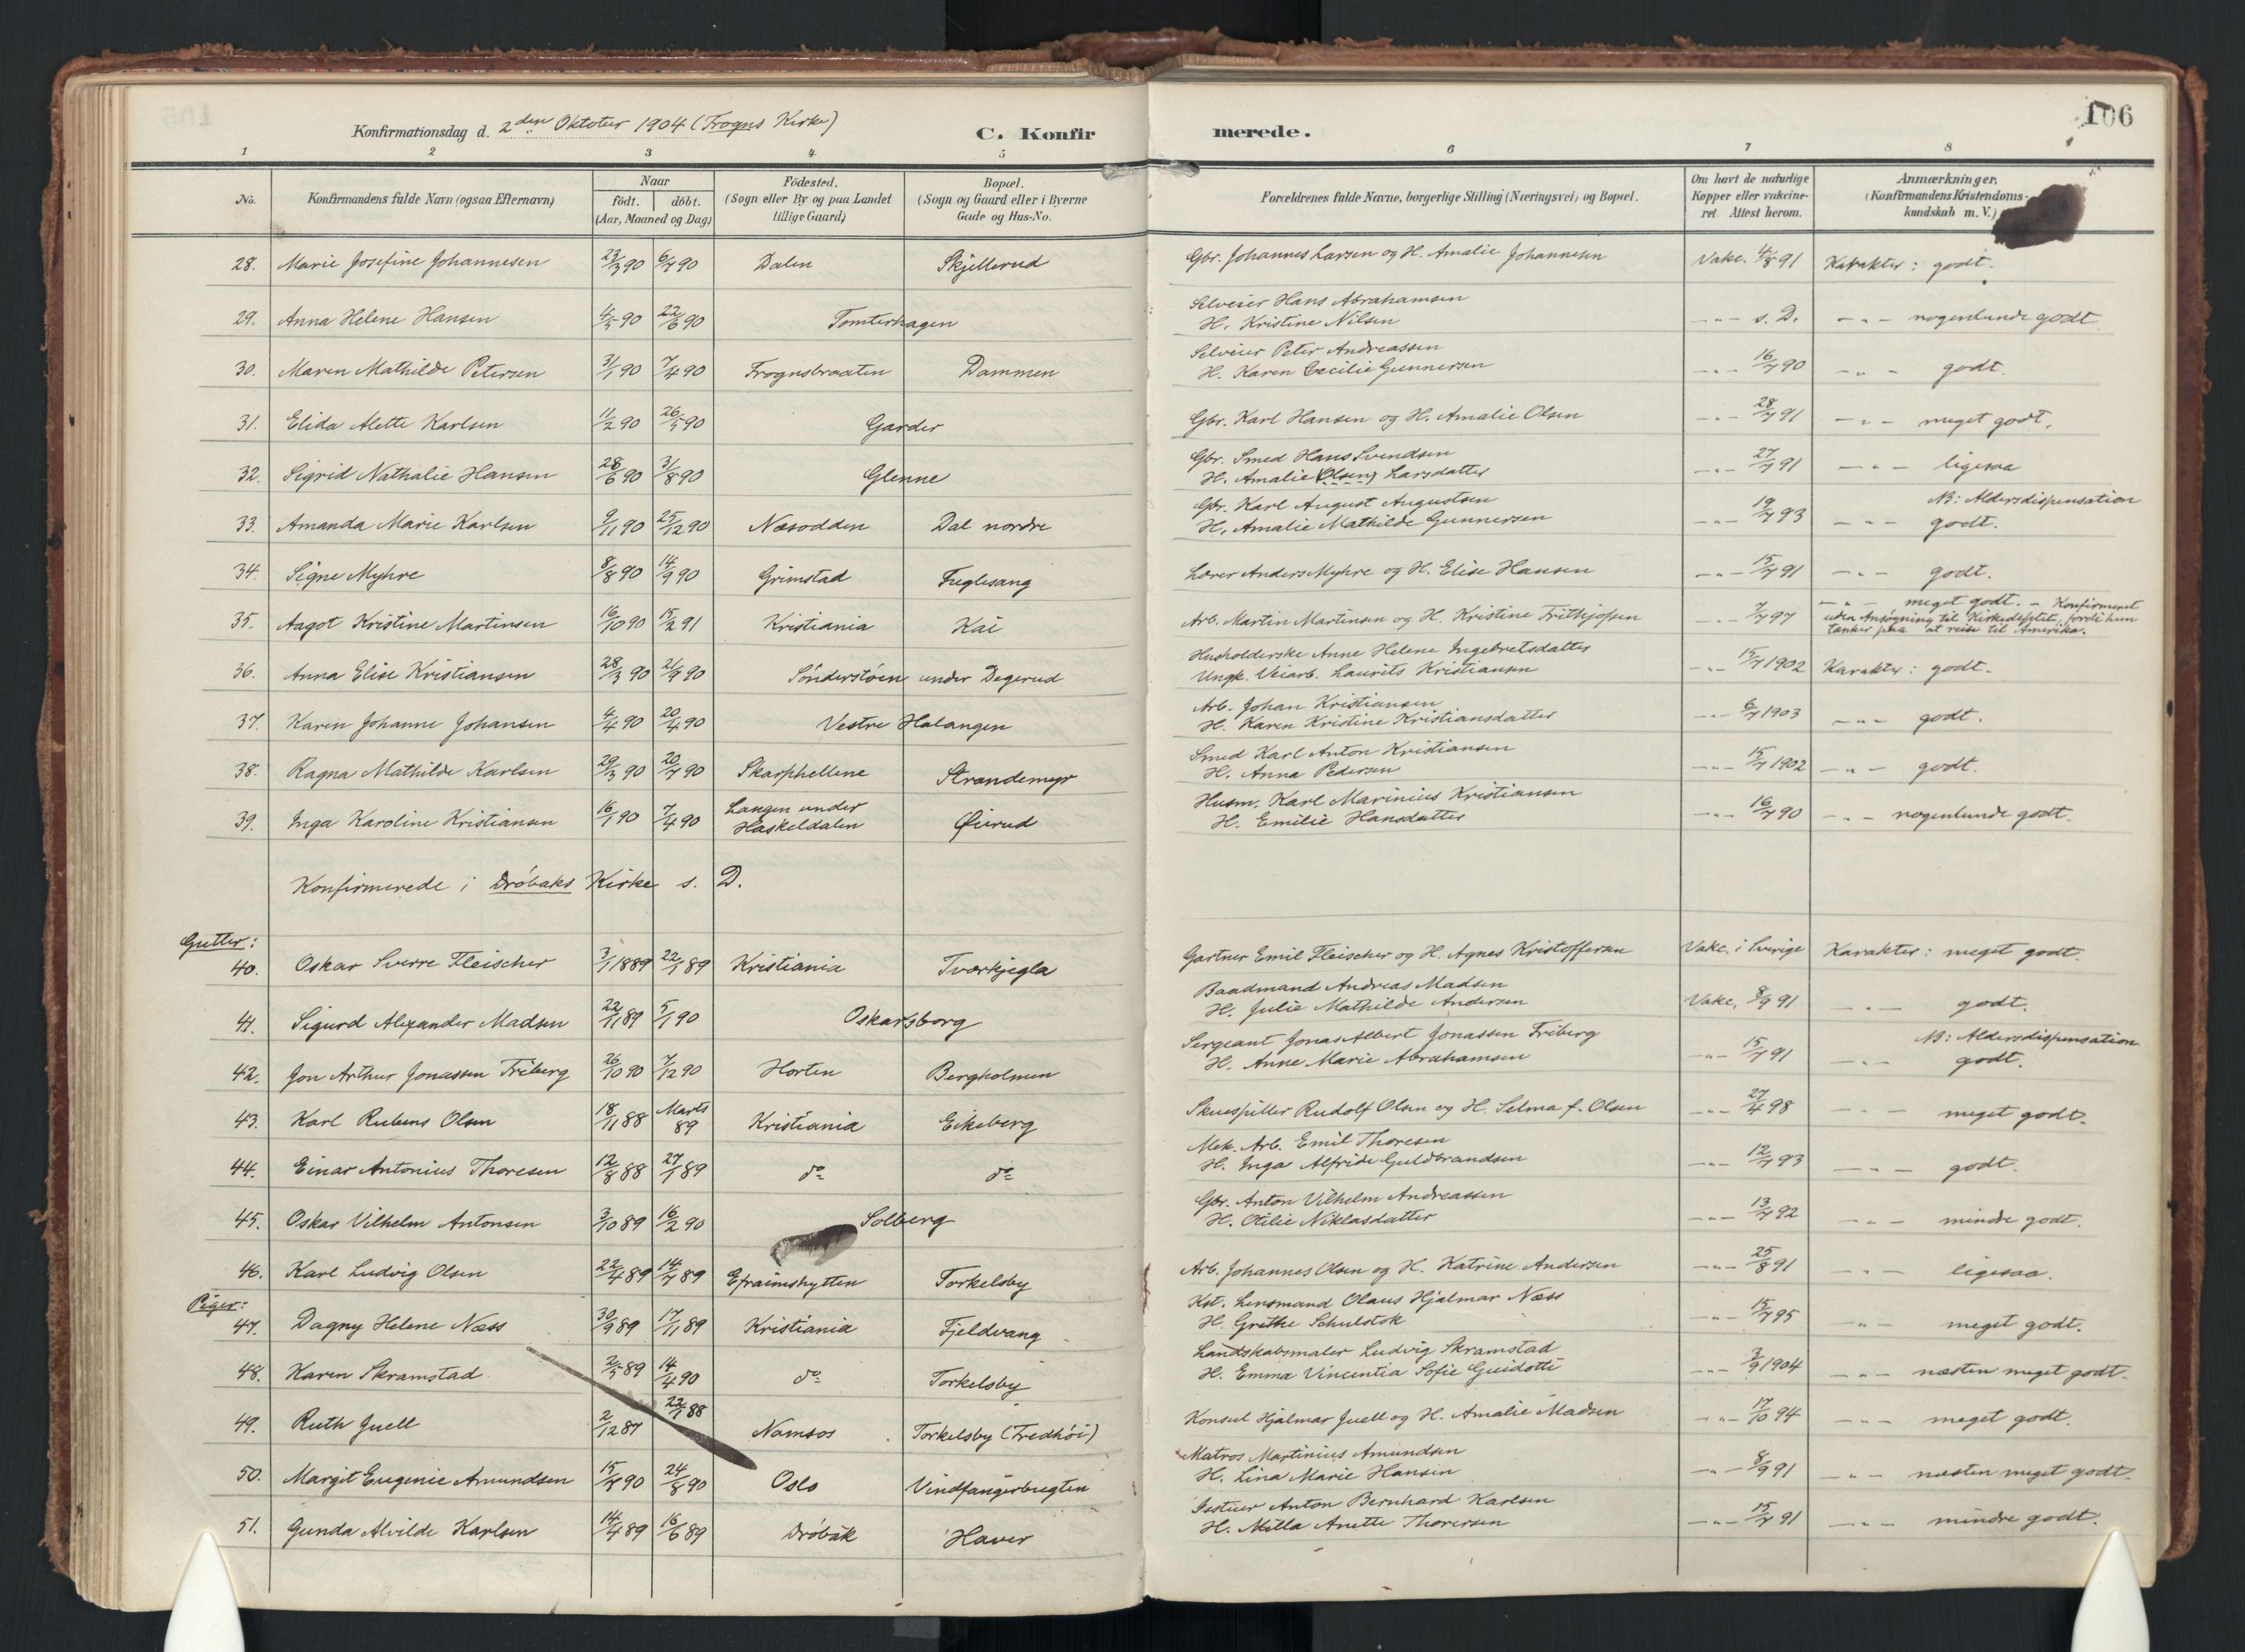 Konfirmationsdag d. 2den Oktober 1904 (Frogns Kirke)
C. Konfirmerede.
106
1 2 3 4 5 6 7 8
No. Konfirmandens fulde Navn (ogsaa Efternavn) Naar födt. döbt. (Aar, Maaned og Dag) Födested. (Sogn eller By og paa Landet tillige Gaard) Bopæl. (Sogn og Gaard eller i Byerne Gade og Hus-No. Forældrenes fulde Navne, borgerlige Stilling (Næringsvei) og Bopæl. Om havt de naturlige Kopper eller vakcineret. Attest herom. Anmærkninger, (Konfirmandens Kristendomskundskab m. V.)
28. Marie Josefine Johannesen 23/3 90 6/7 90 Dalen Skjellerud Gbr. Johannes Larsen og H. Amalie Johannesen Vakc. 4/8 91 Karakter: godt.
29. Anna Helene Hansen 4/5 90 22/6 90 Tomterhagen Selveier Hans Abrahamsen H. Kristine Nilsen —"— s. D. —"— nogenlunde godt
30. Maren Mathilde Petersen 3/1 90 7/4 90 Frognsbraaten Dammen Selveier Peter Andreassen H. Karen Cecilie Gunnersen —"— 16/7 90 —"— godt.
31. Elida Alette Karlsen 11/2 90 26/5 90 Garder Gbr. Karl Hansen og H. Amalie Olsen —"— 28/7 91 —"— meget godt.
32. Sigrid Nathalie Hansen 28/6 90 31/8 90 Glenne Gbr. Smed Hans Svendsen H. Amalie (Olsen) Larsdatter —"— 27/7 91 —"— ligesaa
33. Amanda Marie Karlsen 9/11 90 25/12 90 Næsodden Dal nordre Gbr. Karl August Augustsen H. Amalie Mathilde Gunnersen —"— 19/7 93 —"— NB: Aldersdispensation godt.
34. Signe Myhre 8/8 90 14/9 90 Grimstad Fuglesang Lærer Anders Myhre og H. Elise Hansen —"— 15/7 91 —"— godt.
35. Aagot Kristine Martinsen 16/10 90 15/2 91 Kristiania Kai Arb. Martin Martinsen og H. Kristine Frithjofsen —"— 7/7 97 —"— meget godt. – Konfirmeret uden Ansøgning til Kirkedeptet, fordi hun tænker paa at reise til Amerika.
36. Anna Elise Kristiansen 28/3 90 21/9 90 Sönderstöen under Degerud Husholderske Anne Helene Ingebretsdatter Ungk. Veiarb. Laurits Kristiansen —"— 15/7 1902 Karakter: godt.
37. Karen Johanne Johansen 4/4 90 20/4 90 Vestre Halangen Arb. Johan Kristiansen H. Karen Kristine Kristiansdatter —"— 6/7 1903 —"— godt.
38. Ragna Mathilde Karlsen 29/3 90 20/7 90 Skarphellene Strandemyr Smed Karl Anton Kristiansen H. Anna Pedersen —"— 15/7 1902 —"— godt.
39. Inga Karoline Kristiansen 16/1 90 7/4 90 Langen under Haskeldalen Øierud Husm. Karl Marinius Kristiansen H. Emilie Hansdatter —"— 16/7 90 —"— nogenlunde godt.
Konfirmerede i Dröbaks Kirke s. D.
Gutter:
40. Oskar Sverre Fleischer 3/1 1889 22/1 89 Kristiania Tværkjegla Gartner Emil Fleischer og H. Agnes Kristoffersen Vakc. i Sverige Karakter: meget godt.
41. Sigurd Alexander Madsen 22/11 89 5/1 90 Oskarsborg Baadmand Andreas Madsen H. Julie Mathilde Andersen Vakc. 8/9 91 —"— godt.
42. Jon Arthur Jonassen Friberg 26/10 90 7/12 90 Horten Bergholmen Sergeant Jonas Albert Jonassen Friberg H. Anne Marie Abrahamsen —"— 15/7 91 —"— NB: Aldersdispensation godt.
43. Karl Rubens Olsen 18/11 88 Marts 89 Kristiania Ekeberg Skuespiller Rudolf Olsen og H. Selma f. Olsen —"— 27/4 98 —"— meget godt.
44. Einar Antonius Thoresen 12/8 88 27/1 89 do do Mek. Arb. Emil Thoresen H. Inga Alfride Guldbrandsen —"— 12/7 93 —"— godt.
45. Oskar Vilhelm Antonsen 3/10 89 16/2 90 Solberg Gbr. Anton Vilhelm Andreassen H. Otilie Niklasdatter —"— 13/7 92 —"— mindre godt.
46. Karl Ludvig Olsen 22/4 89 14/7 89 Efraimshytten Torkelsby Arb. Johannes Olsen og H. Katrine Andersen —"— 25/8 91 —"— ligesaa.
Piger:
47. Dagny Helene Næss 30/9 89 17/11 89 Kristiania Fjeldvang Kst. Lensmand Olaus Hjalmar Næss H. Grethe Schulstok —"— 15/7 95 —"— meget godt.
48. Karen Skramstad 2/5 89 14/4 90 do Torkelsby Landskabsmaler Ludvig Skramstad H. Emma Vincentia Sofie Guidotti —"— 3/9 1904 —"— næsten meget godt.
49. Ruth Juell 2/12 87 22/1 88 Namsos Torkelsby (Fredhöi) Konsul Hjalmar Juell og H. Amalie Madsen —"— 17/10 94 —"— meget godt.
50. Margit Eugenie Amundsen 15/7 90 24/8 90 Oslo Vindfangerbugten Matros Martinius Amundsen H. Lina Marie Hansen —"— 8/9 91 —"— næsten meget godt.
51. Gunda Alvilde Karlsen 14/4 89 16/6 89 Dröbak Haver Anton Bernhard Karlsen H. Milla Anette Thorersen —"— 15/7 91 —"— mindre godt.